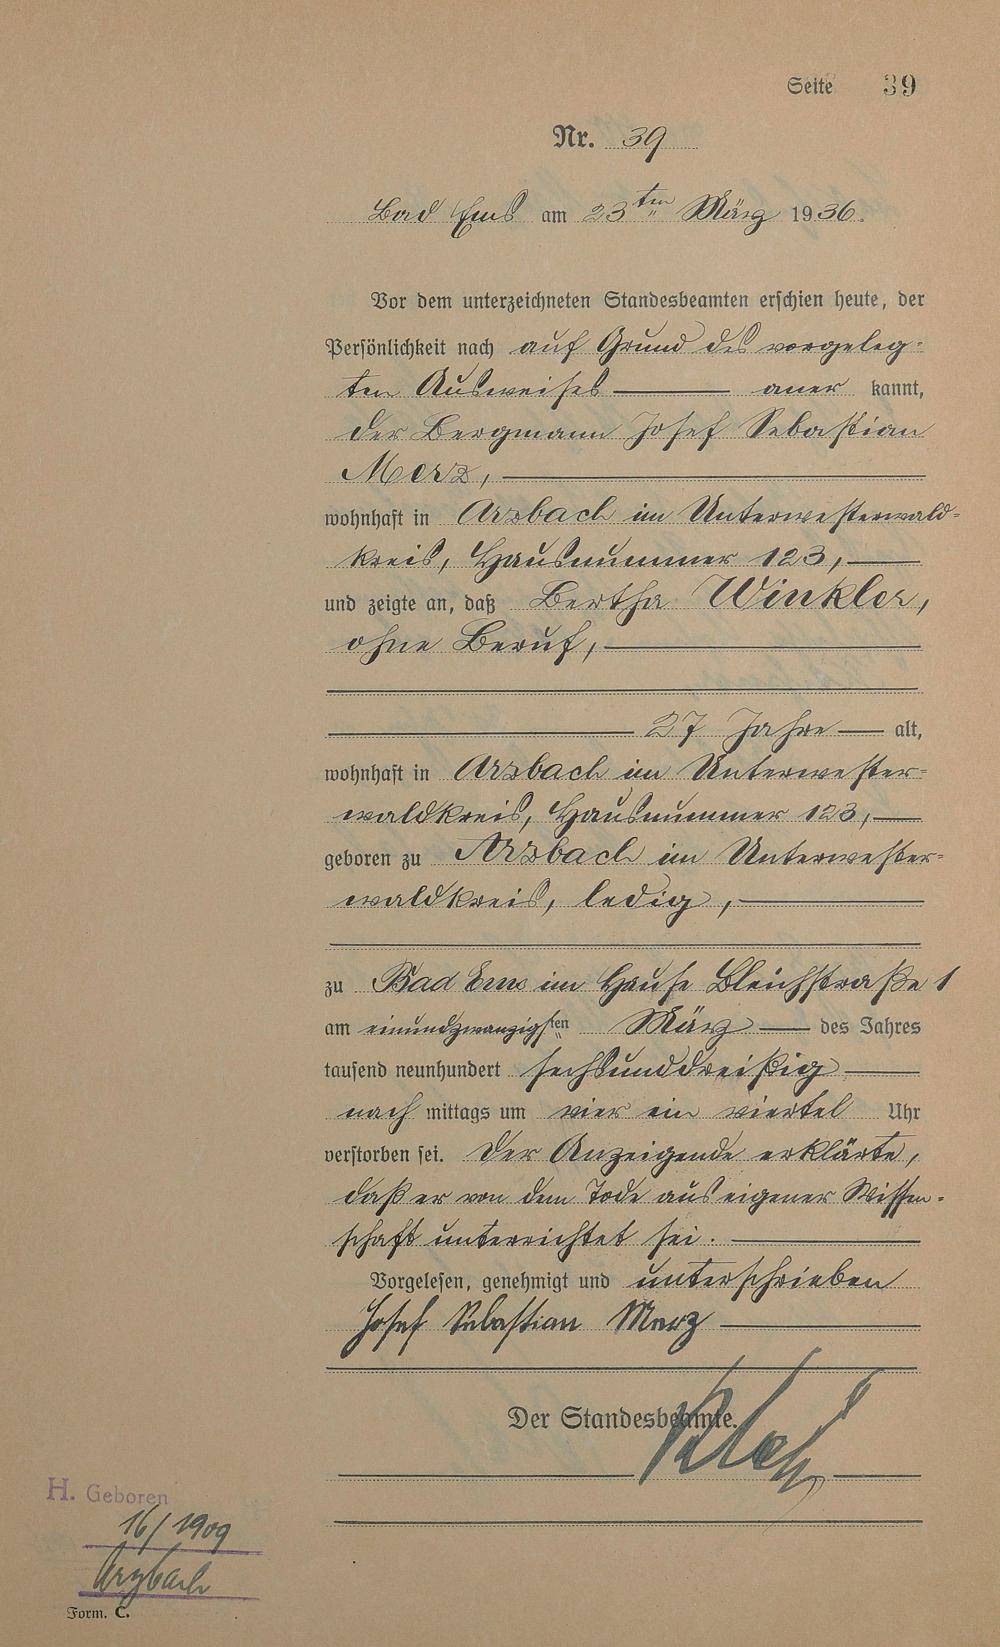 Seite 39
Nr. 39
Bad Ems am 23ten März 1936.
Vor dem unterzeichneten Standesbeamten erschien heute, der
Persönlichkeit nach auf Grund des vorgeleg-
ten Ausweises aner kannt,
der Bergmann Josef Sebastian
Merz,
wohnhaft in Arzbach im Unterwesterwald-
kreis, Hausnummer 123,
und zeigte an, daß Bertha Winkler,
ohne Beruf,
27 Jahre alt,
wohnhaft in Arzbach im Unterwester-
waldkreis, Hausnummer 123,
geboren zu Arzbach im Unterwester-
waldkreis, ledig,
zu Bad Ems im Hause Bleichstraße 1
am einundzwanzigsten März des Jahres
tausend neunhundert sechsunddreißig
nach mittags um vier ein viertel Uhr
verstorben sei. Der Anzeigende erklärte,
daß er von dem Tode aus eigener Wissen-
schaft unterrichtet sei.
Vorgelesen, genehmigt und unterschrieben
Josef Sebastian Merz
Der Standesbeamte.
H. Geboren
16/1909
Arzbach
Form. C.